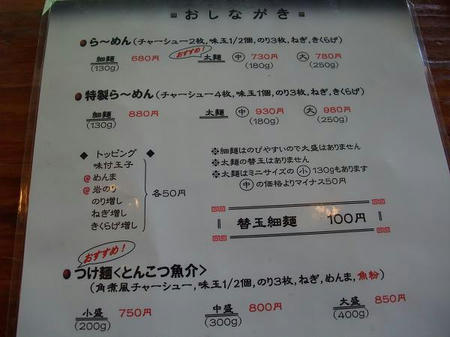 おしながき
●ら～めん(チャーシュー2枚,味玉1/2個,のり3枚,ねぎ,きくらげ)
おすすめ!
細麺 680円 太麺 中 730円 大 780円
(130g) (180g) (250g)
●特製ら～めん(チャーシュー4枚,味玉1個,のり3枚,ねぎ,きくらげ)
細麺 880円 太麺 中 930円 大 980円
(130g) (180g) (250g)
◆ トッピング ◆
味付玉子
@めんま
@岩のり
のり増し
ねぎ増し
きくらげ増し
各50円
※細麺はのびやすいので大盛はありません
※太麺の替玉はありません
※太麺はミニサイズの小130gもあります
中の価格よりマイナス50円
替玉細麺 100円
おすすめ!
●つけ麺<とんこつ魚介>
(角煮風チャーシュー,味玉1/2個,のり3枚,ねぎ,めんま,魚粉)
小盛 750円 中盛 800円 大盛 850円
(200g) (300g) (400g)